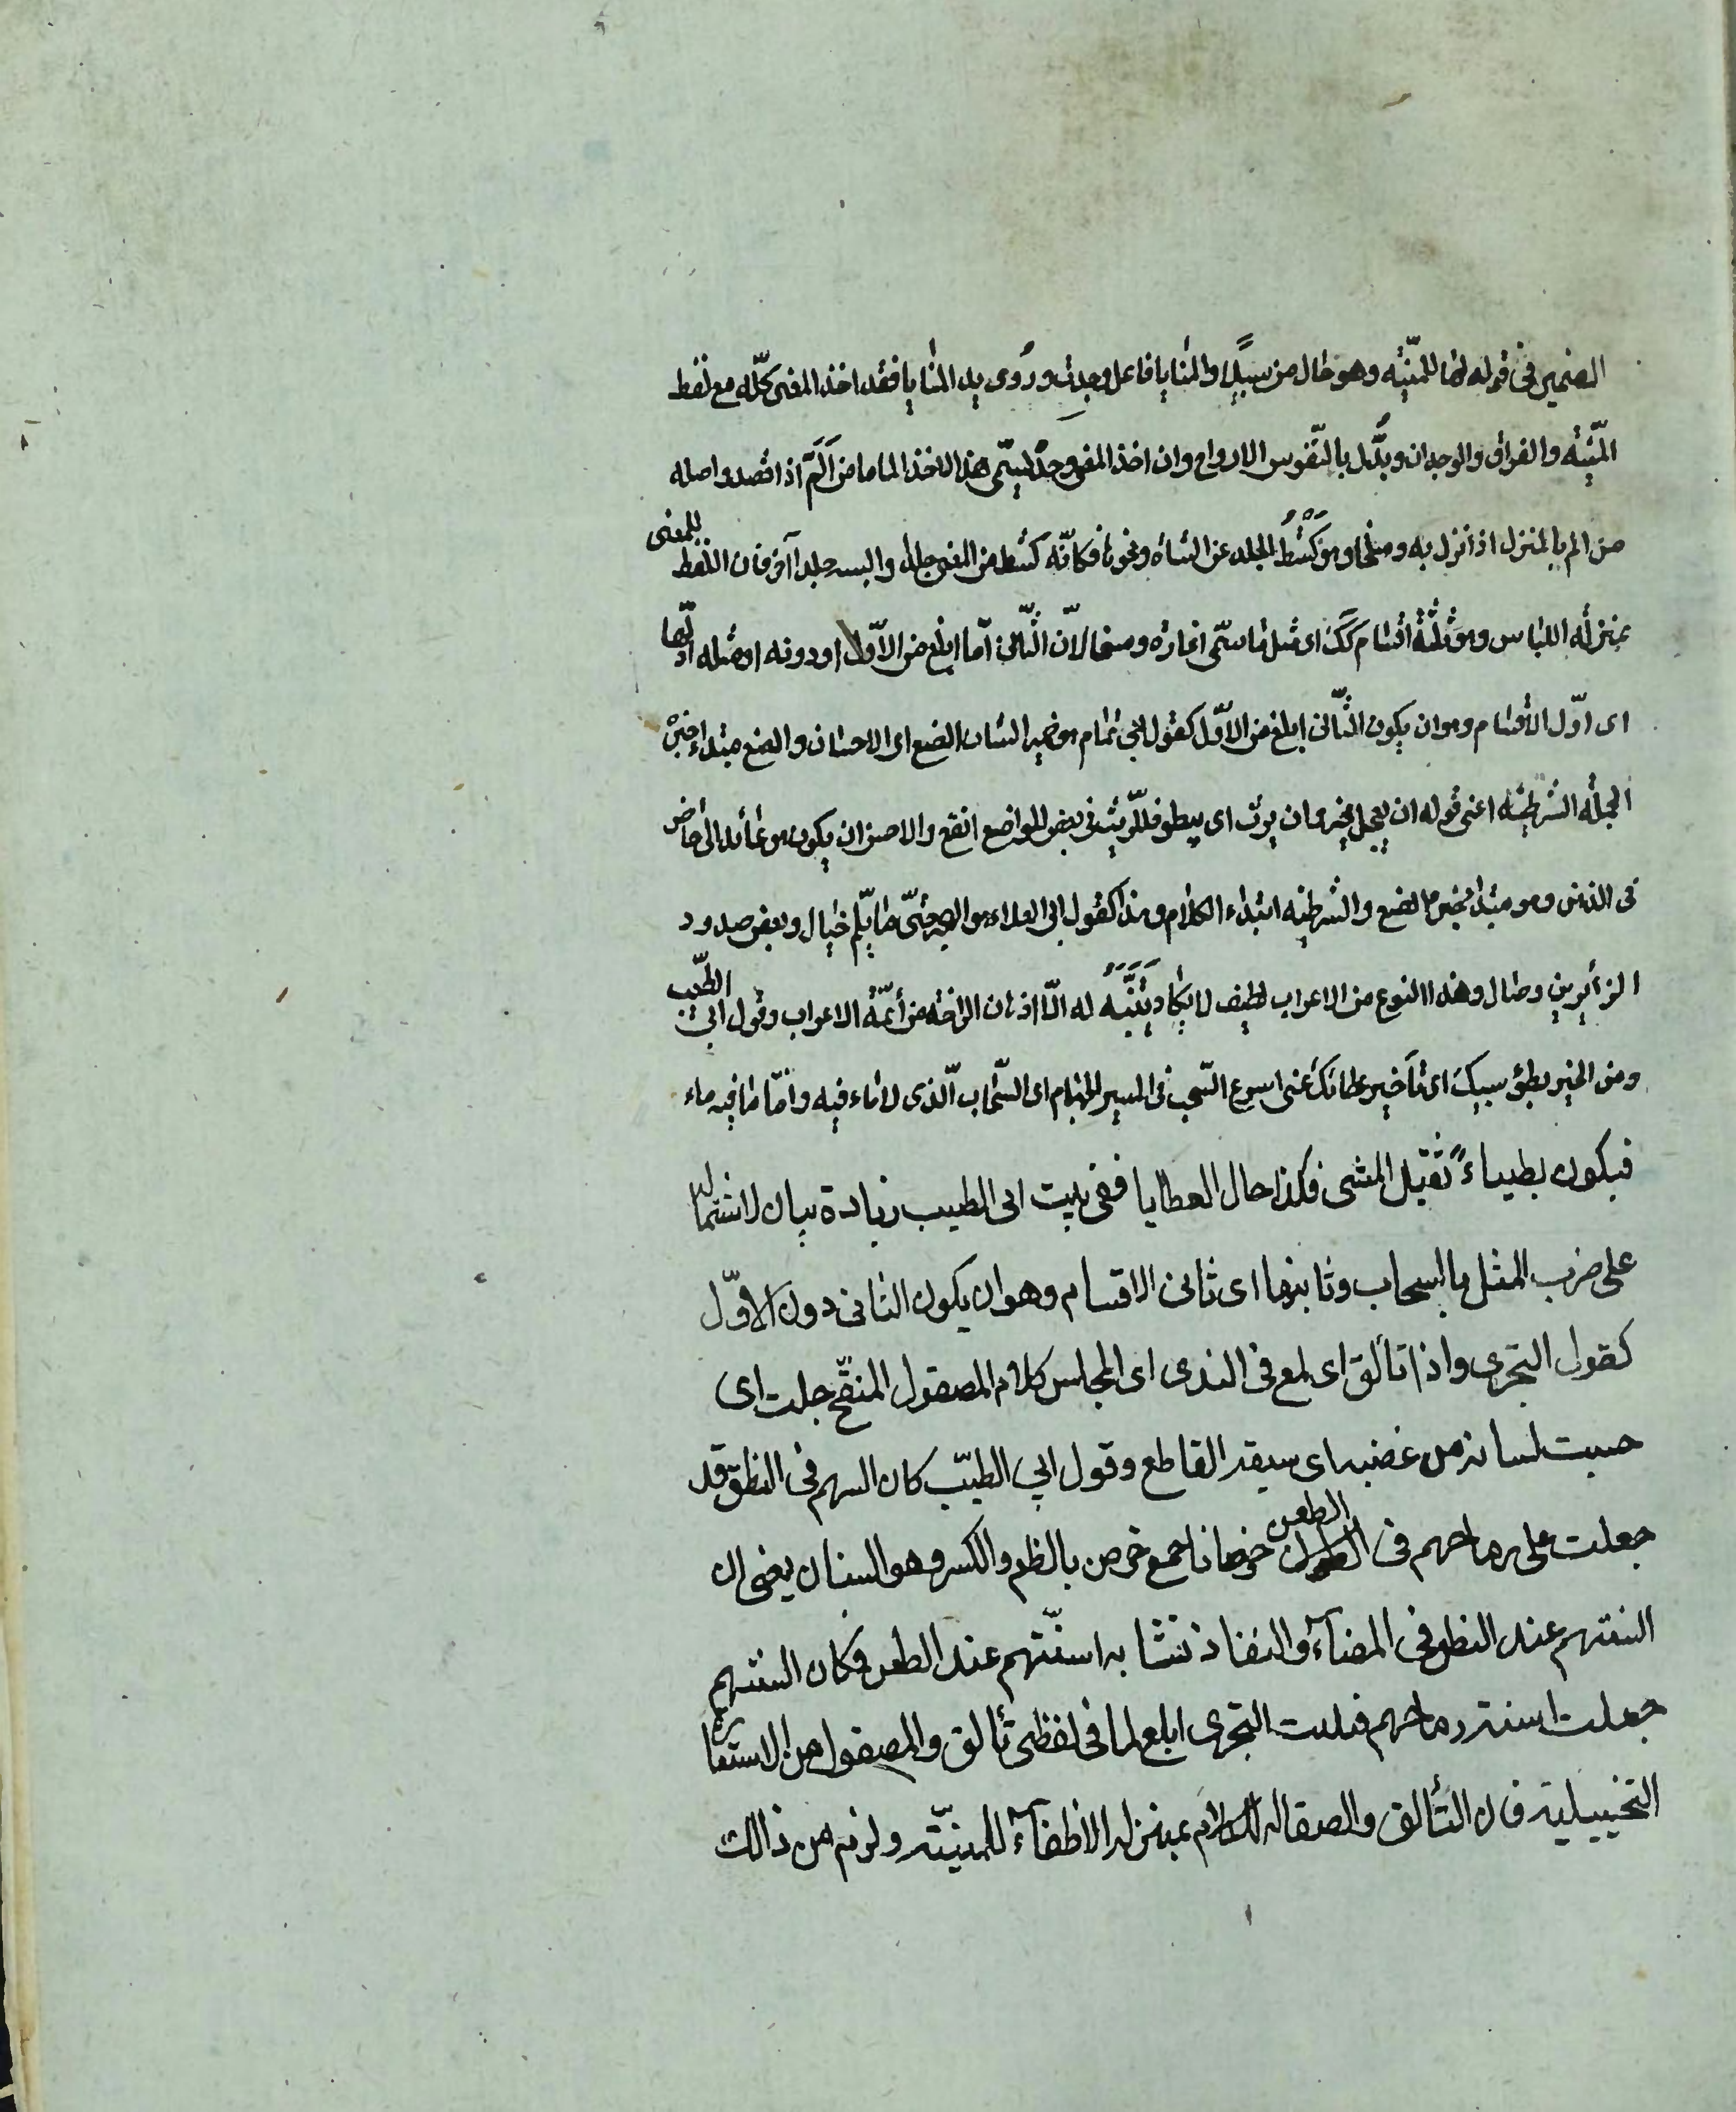 الضمير في قوله لها للمنيّة وهو حال من سبيلًا والمنايا فاعل وجدت وروى يد المنايا فقد اخذ المعنى كلّه مع لفظ
المنيّة والفراق والوجدان وبدّل بالنّفوس الارواح وان اخذ المعنى وحده سمّى هذا الاخذ الماما من اَلَمَّ اذا قصد واصله
من الم بالمنزل اذا نزل به وسلخا وهو كَشْطُ الجلد عن الشاة ونحوها فكانّه كشط من المعنى جلدا والبسه جلدا آخر فان اللفظ للمعنى
بمنزلة اللباس وهو ثلثة اقسام كك اى مثل ما سمّى اغارة ومسخا لانّ الثّانى امّا ابلغ من الاوّل او دونه او مثله اوّلها
اى اوّل الاقسام وهو ان يكون الثّانى ابلغ من الاوّل كقول ابى تمام هو ضمير الشان الصنع اى الاحسان والصنع مبتداء خبره
الجملة الشرطيّة اعنى قوله ان يعجل فخير وان يرث اى يبطؤ فللرّيث فى بعض المواضع انفع والاحسن ان يكون هو عائد الى حاضر
فى الذهن وهو مبتدا خبره الصنع والشرطيه ابتداء الكلام وهذا كقول ابى العلاء هو الهجر حتّى ما يلّم خيال وبعض صدود
الزائرين وصال وهذا النوع من الاعراب لطيف لا يكاد يَتَنَبَّهُ له الّا الاذهان الراضة من أئمّة الاعراب وقول ابى الطّيب
ومن الخير بطؤ سيبك اى تأخير عطائك عنى اسرع السّحب فى المسير الجهام اى السّحاب الّذى لا ماء فيه وامّا ما فيه ماء
فيكون بطيئاءً ثقيل المشى فكذا حال العطايا ففى بيت ابى الطيب زيادة بيان لاشتماله
على ضرب المثل بالسحاب وثانيها اى ثانى الاقسام وهو ان يكون الثانى دون الاوّل
كقول البحترى واذا تألق اى لمع فى الندى اى المجلس كلامه المصقول المنقّح خلت اى
حسبت لسانه من عضبه اى سيفه القاطع وقول ابى الطيّب كان السنهم فى النطق قد
جعلت على رماحهم فى الطعن خرصانا جمع خرص بالظم والكسر وهو السنان يعنى ان
السنتهم عند النطق فى المضآء والنفاذ تشابه اسنّتهم عند الطعن فكان السنتهم
جعلت اسنة رماحهم فبيت البحترى ابلغ لما فى لفظى تألق والمصقول من الاستعارة
التخييلية فان التألق والصقالة للكلام بمنزلة الاظفآء للمنيّة ولزم من ذالك